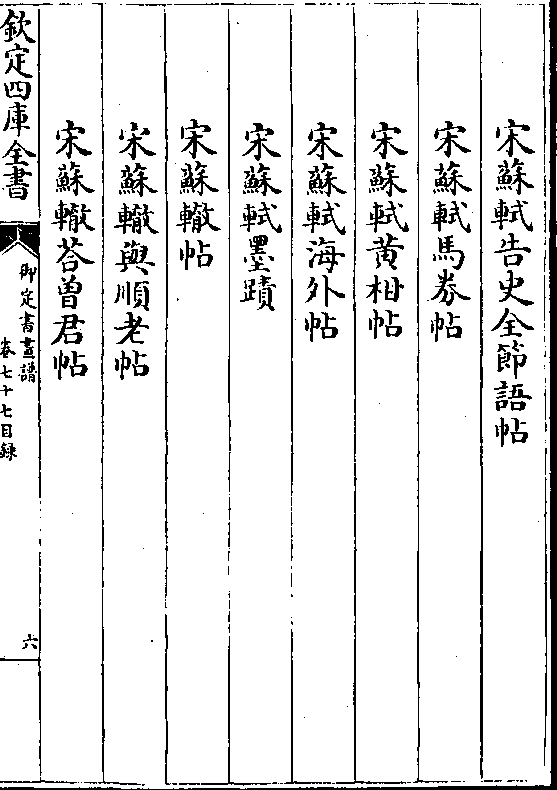 宋蘇軾告史全節語帖
宋蘇軾馬券帖
宋蘇軾黄柑帖
宋蘇軾海外帖
宋蘇軾墨蹟
宋蘇轍帖
宋蘇轍與順老帖
宋蘇轍荅曽君帖
欽定四庫全書
御定書畫譜
卷七十七目録
六